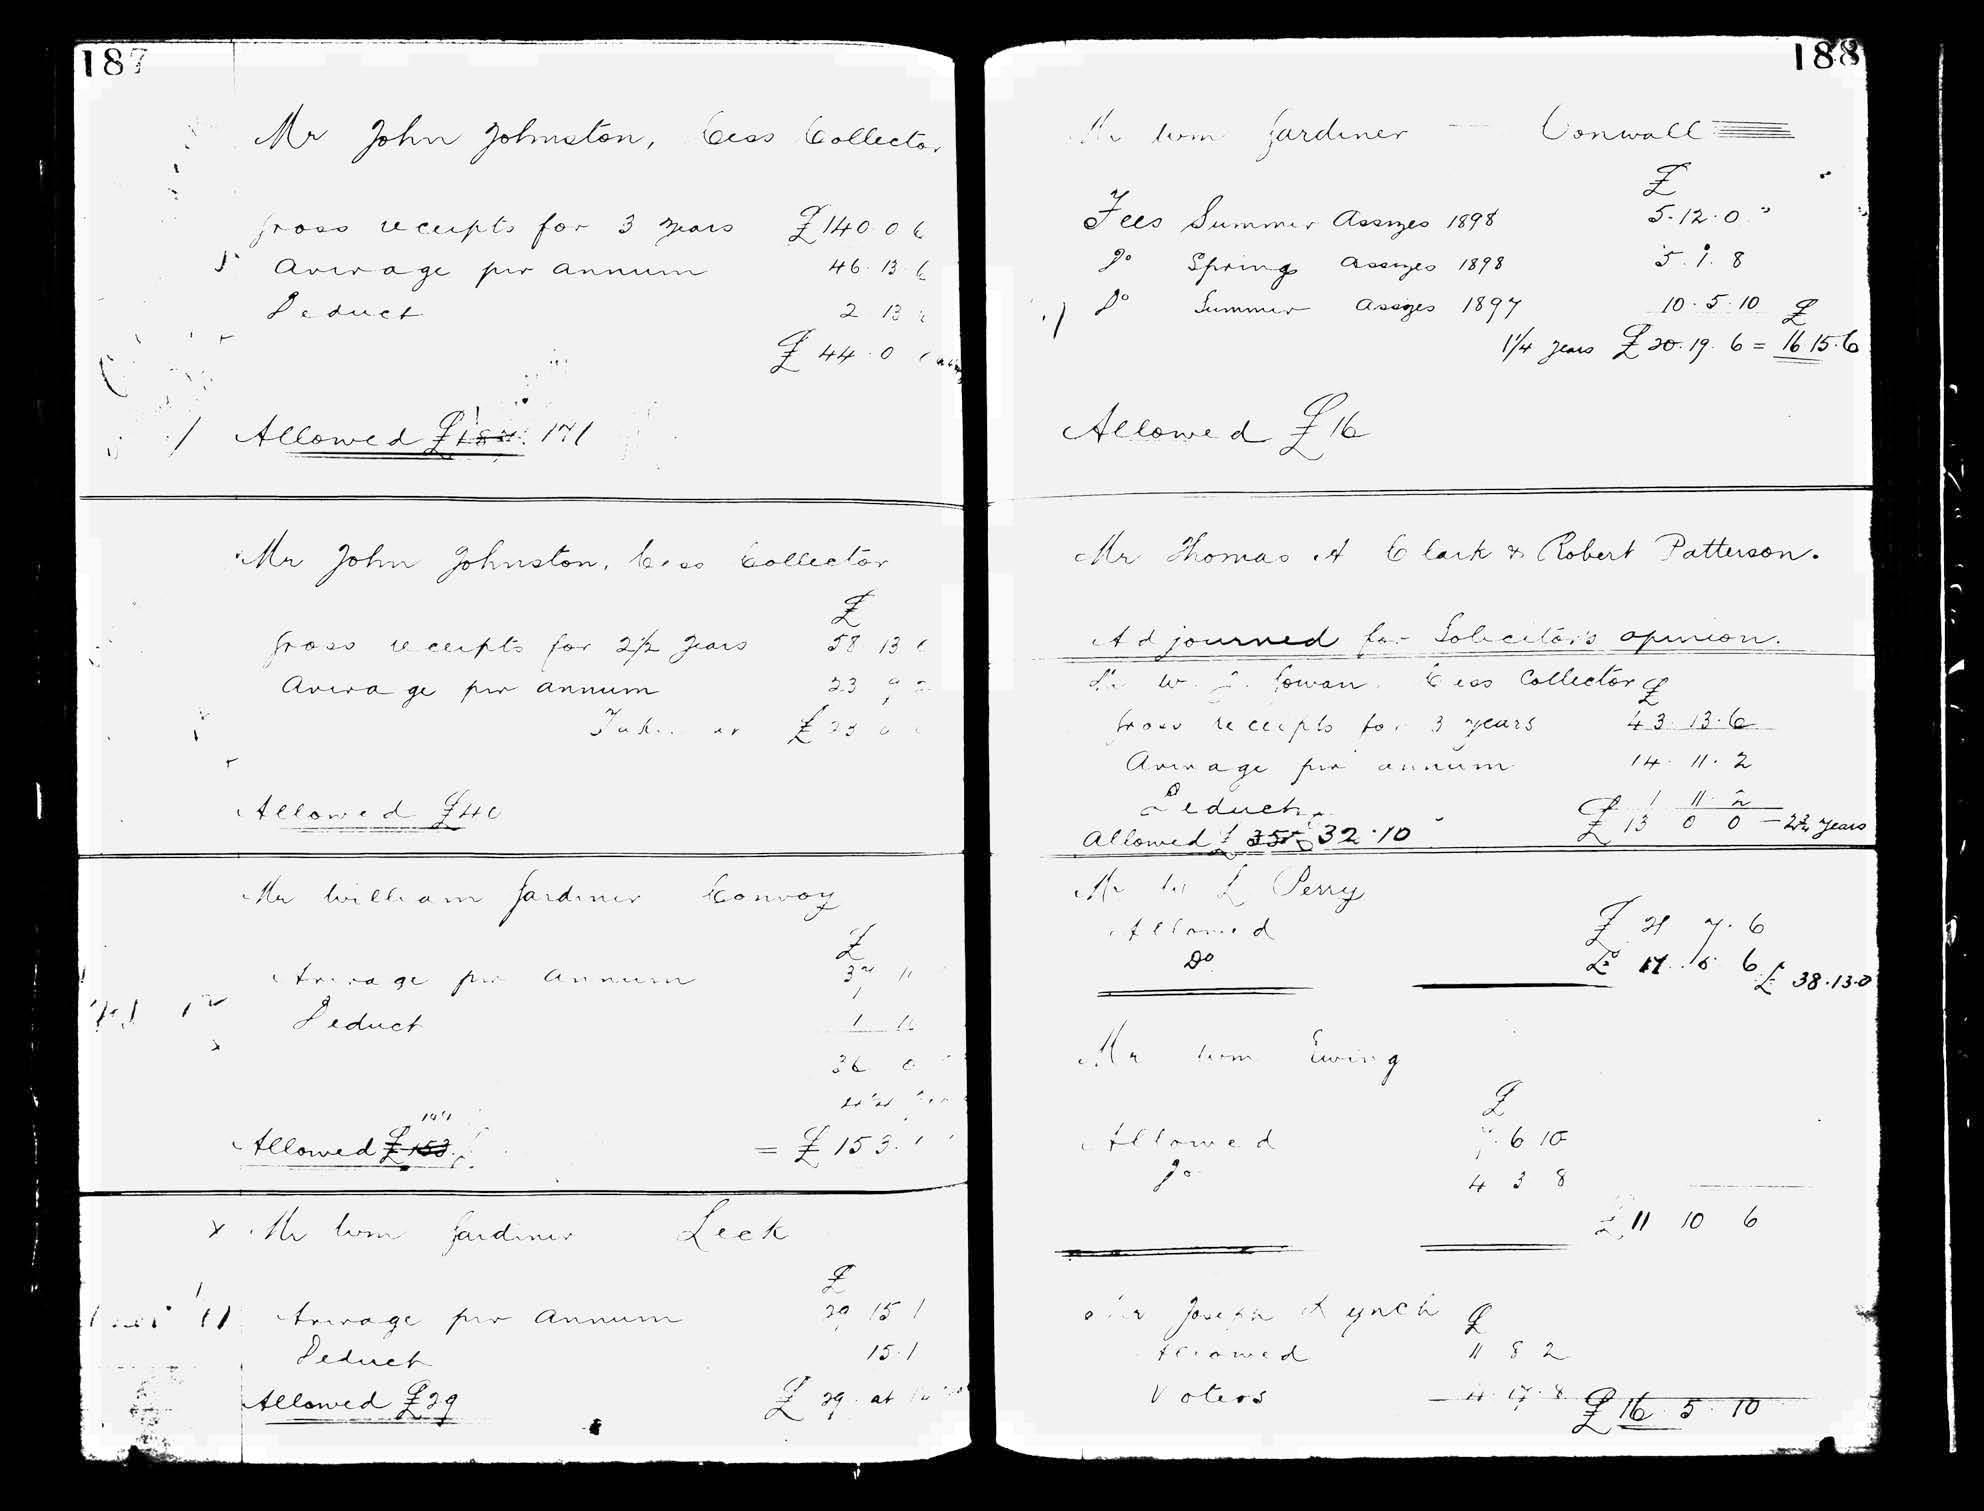 187
Mr John Johnston, Cess Collector
Gross receipts for 3 years £140.0.6
Average per annum 46.13.6
Deduct 2 13
£44.0
Allowed £ 171
Mr John Johnston, Cess Collector
£
Gross receipts for 2½ years 58 13
Average per annum 23 9 2
Taken at £23 0
Allowed £40
Mr William Gardiner Convoy
£
Average per annum 37 11
Deduct 1 11
36 0
Allowed £153 = £153.
x Mr Wm Gardiner Leck
£
Average per annum 29 15 1
Deduct 15.1
Allowed £29 £29 at
188
Mr Wm Gardiner Conwall
£
Fees Summer Assizes 1898 5.12.0
Do Spring Assizes 1898 5.1.8
Do Summer Assizes 1897 10.5.10 £
1¼ years £20.19.6 = 16 15.6
Allowed £16
Mr Thomas A Clark & Robert Patterson.
Adjourned for Solicitors opinion.
Mr W. J. Gowan. Cess Collector £
Gross receipts for 3 years 43.13.6
Average per annum 14.11.2
Deduct 1 11 2
£13 0 0 – 2½ years
Allowed £ 35 32.10
Mr W L Perry
Allowed £21 7.6
Do £17.5 6 £38.13.0
Mr Wm Ewing
£
Allowed 7.6 10
Do 4 3 8
£11 10 6
Mr Joseph Lynch £
Allowed 11 8 2
Voters 4.17.8 £16 5 10